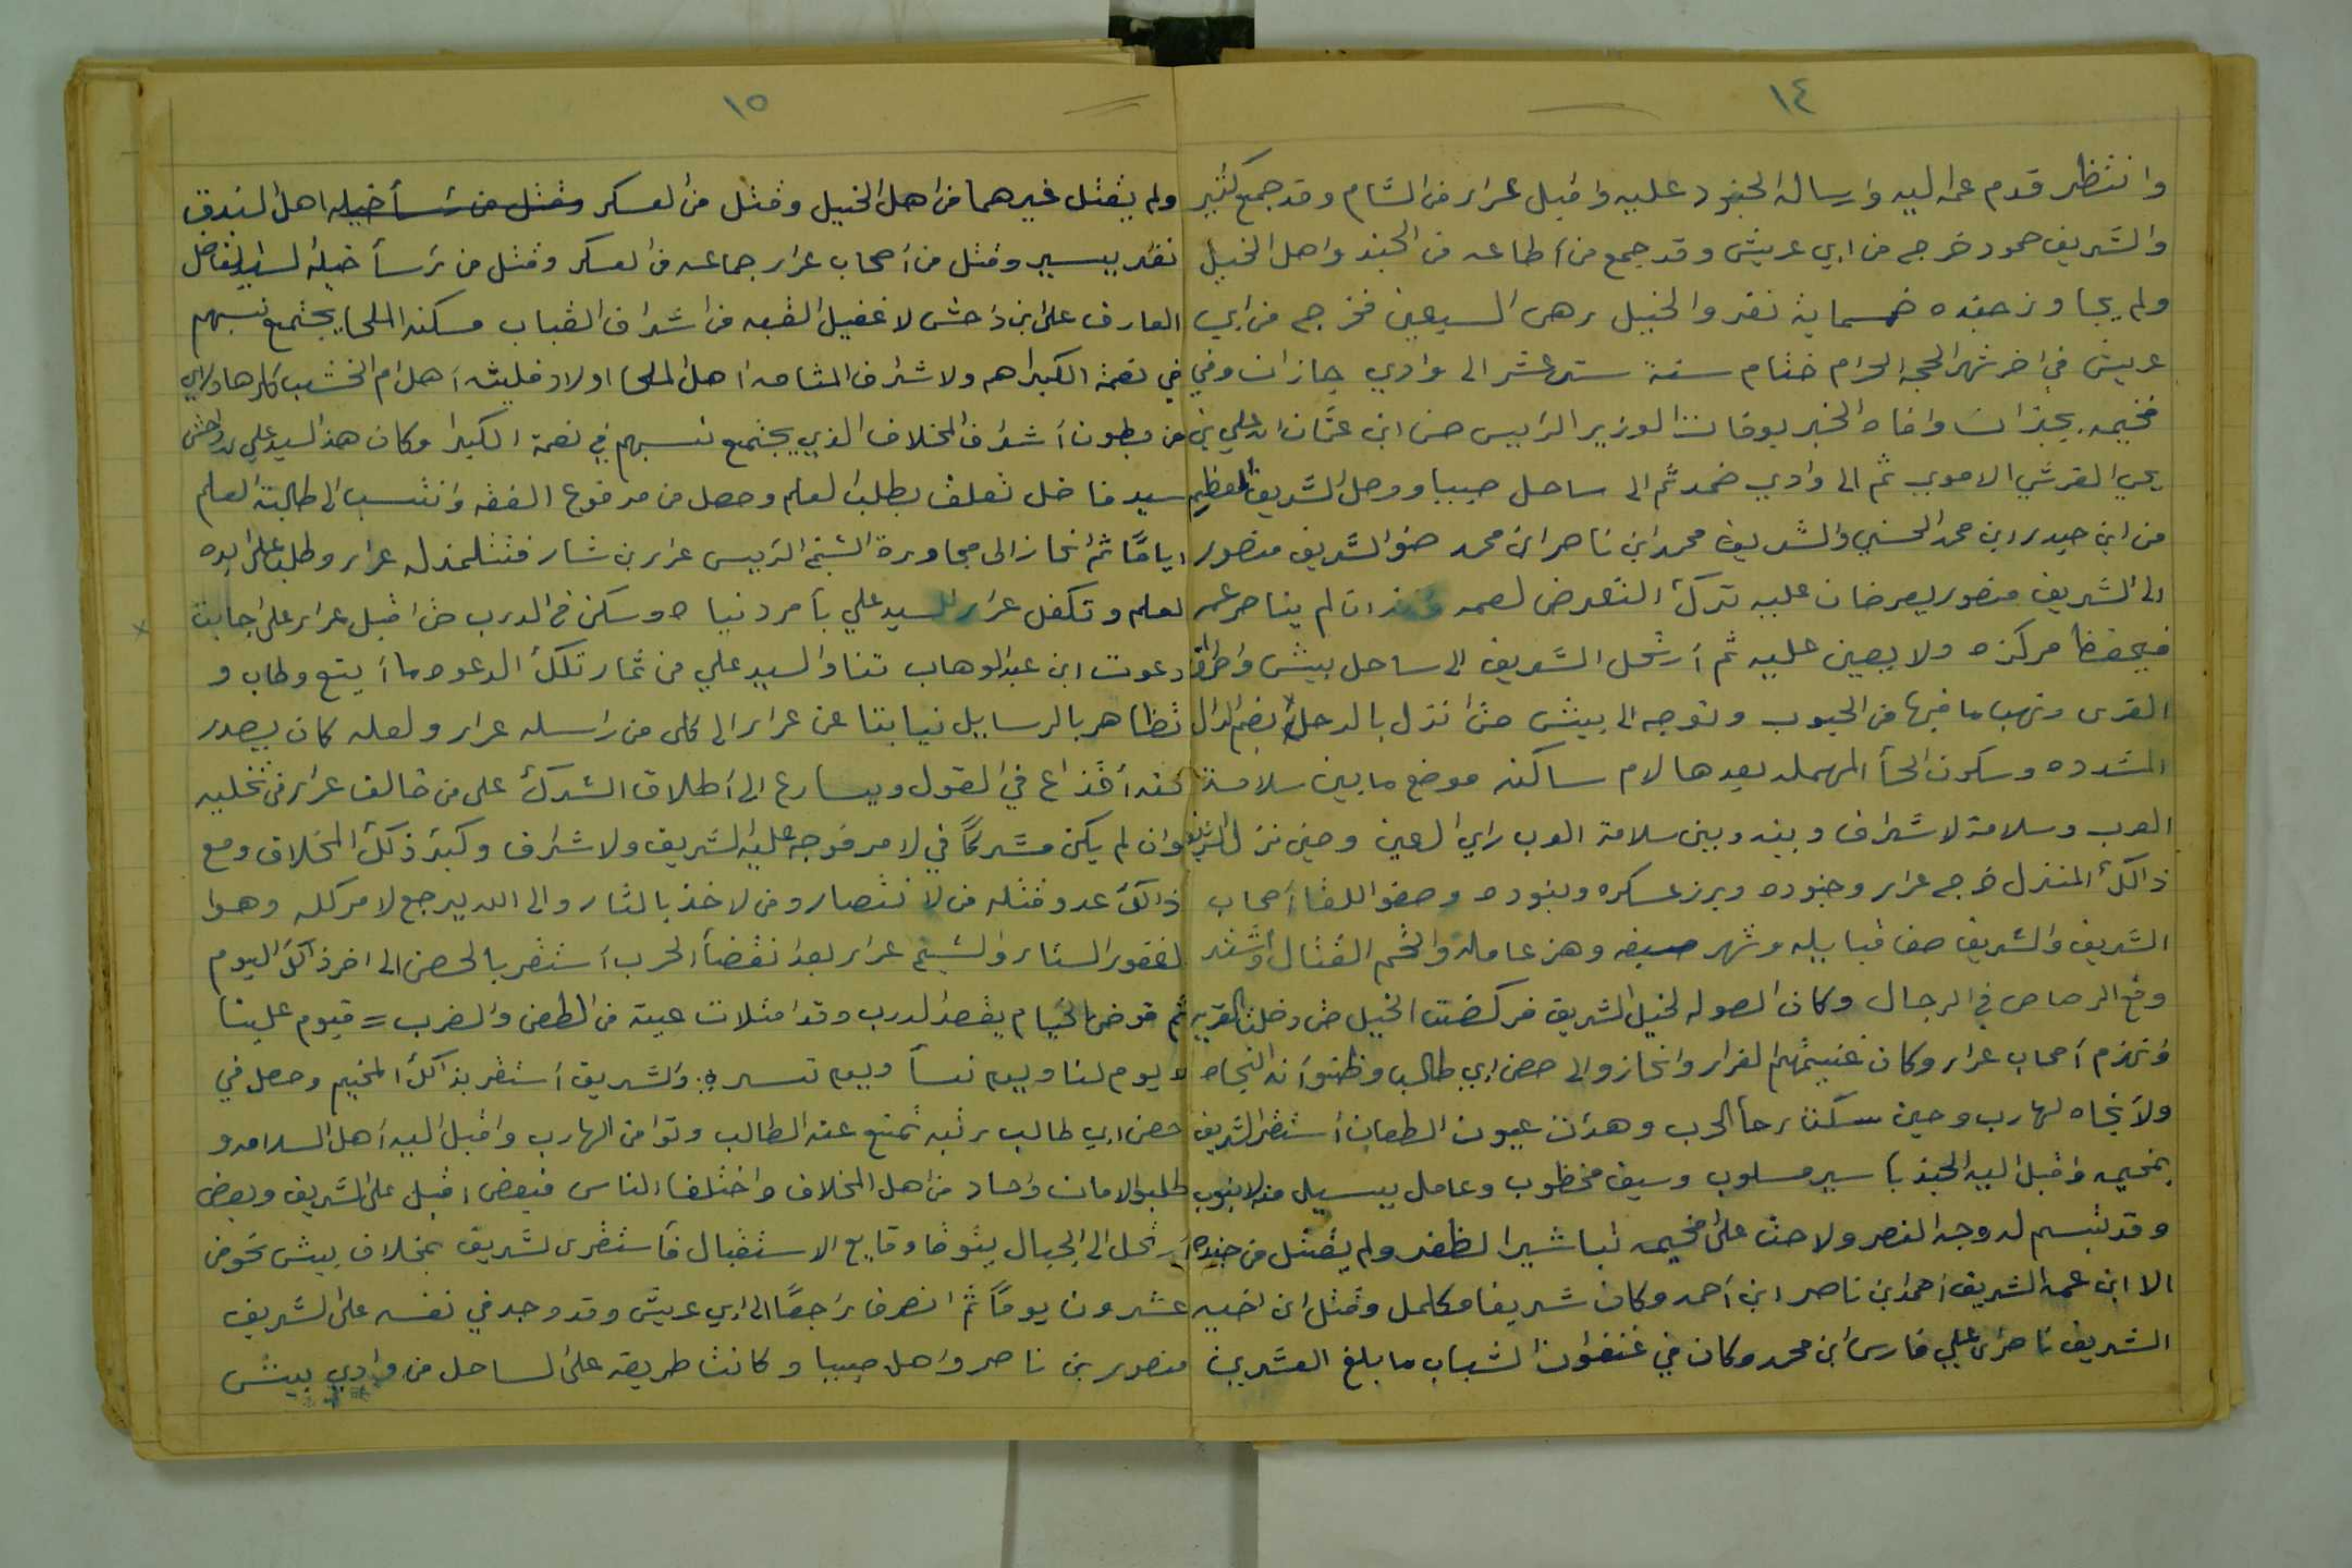 ١٤
وانتظر قدم عمه اليه وارساله الجنود عليه واقبل عرار من الشام وقد جمع كثير
والشريف حمود خرج من ابي عريش وقد جمع من أطاعه من الجند واهل الخيل
ولم يجاوز جنده خمسماية نفر والخيل رهن السبعين فخرج من ابي
عريش في اخر شهر الحجه الحرام ختام سنة ستة عشر الى وادي جازان وفي
مخيمه بجيزان وافاه الخبر بوفات الوزير الرايس حسن ابن عثمان ابن علي بن
يحي القرشي الاموي ثم الى وادي ضمد ثم الى ساحل صبيا ووصل الشريف
من ابن حيدر ابن محمد الحسني والشريف محمد ابن ناصر ابن محمد صنو الشريف منصور
الى الشريف منصور يعرضان عليه ترك التعرض لعمه ان لم يناصر عمه
فيحفظ مركزه ولا يعين عليه ثم أرتحل الشريف الى ساحل بيش
القرى ونهب ما فيها من الحبوب وتوجه الى بيش حتى انزل بالدحل بضم الدال
المشدده وسكون الحأ المهمله بعدها لام ساكنه موضع مابين سلامة
العرب وسلامة لاشراف وبينه وبين سلامة العرب راي العين وحين نزل الشريف
ذالك المنزل خرج عرار وجنوده وبرز عسكره وبنوده وصفو اللقا أصحاب
الشريف والشريف صف قبايله وشهر سيفه وهز عامله والتحم القتال وأشتد
وقع الرصاص في الرجال وكان الصوله لخيل الشريف فركضت الخيل حتى دخلت القريه
وانهزم أصحاب عرار وكان غنيمتهم الفرار وانحازو الى حصن ابي طالب وظنو أنه النجاه
ولا نجاه لهارب وحين سكنت رحأ الحرب وهدئت عيون الطعان أستقر الشريف
بمخيمه واقبل اليه الجند بأسير مسلوب وسيف مخظوب وعامل يسيل منه الانبوب
وقد تبسم له وجه النصر ولاحت على مخيمه تباشير الظفر ولم يقتل من جنده
الا ابن عمه الشريف أحمد ابن ناصر ابن أحمد وكان شريفا مكامل وقتل ابن اخيه
الشريف ناصر ابن علي فارس ابن محمد وكان في عنفوان الشباب ما بلغ العشرين
١٥
ولم يقتل غيرهما من اهل الخيل وقتل من العسكر وقتل من رأسأ خيله اهل البندق
نفر يسير وقتل من أصحاب عرار جماعه من العسكر وقتل من رأسأ خيله السيد الفاضل
العارف على ابن داحش لا عفيل القبه من اشراف القباب مسكنه الملحا يجتمع نسبهم
في نعمة الكبراهم ولاشراف المثامه أهل الملحا اولاد فليته أهل ام الخشب
من بطون أشراف المخلاف الذي يجتمع نسبهم في نعمة الكبرا وكان هذ السيد علي بن داحش
سيد فاضل تعلق بطلب العلم وحصل من مرفوع الفقه وانتسب الى طالبته العلم
اياماً ثم انحاز الى مجاورة الشيخ الرئيس عرار بن شار فتتلمذ له عرار وطلب على ايده
لعلم وتكفل عرار للسيد علي بأمر دنياه وسكن في الدرب حتى اقبل عرار على اجابة
دعوت ابن عبد الوهاب تناوا السيد علي من ثمار تلك الدعوه ما أينع وطاب و
تظاهر بالرسايل نيابتا عن عرار الى كلى من راسله عرار ولعله كان يصدر
منه أقذاع في القول ويسارع الى أطلاق الشرك على من خالف عرار من تخليه
وان لم يكن مشركاً في لامر فوجه عليه الشريف ولاشراف وكبر ذلك المخلاف ومع
ذالك عد وقتله من لانتصار ومن لاخذ بالثار والى الله يرجع لامر كله وهوا
الغفور الستار والشيخ عرار بعد انقضأ الحرب أستقر بالحصن الى اخر ذالك اليوم
ثم قوض الخيام يقصد الدرب وقد امتلات عيبة من الطعن والضرب = فيوم علينا
ويوم لنا ويوم نسأ ويوم نسر ؞ والشريف أستقر بذالك المخيم وحصل في
حصن ابي طالب رتبه تمتع عنه الطالب وتوا من الهارب واقبل اليه أهل السلامه و
طلبو الامان واحاد من اهل المخلاف واختلف الناس فبعض اقبل على الشريف وبعض
أرتحل الى الجبال يتوقا وقايع الاستقبال فأستقرى لشريف بمخلاف بيش نحوض
عشرون يوماً ثم انصرف راجعاً الى ابي عريش وقد وجد في نفسه على الشريف
منصور بن ناصر واهل صبيا وكانت طريقه على الساحل من وادي بيش